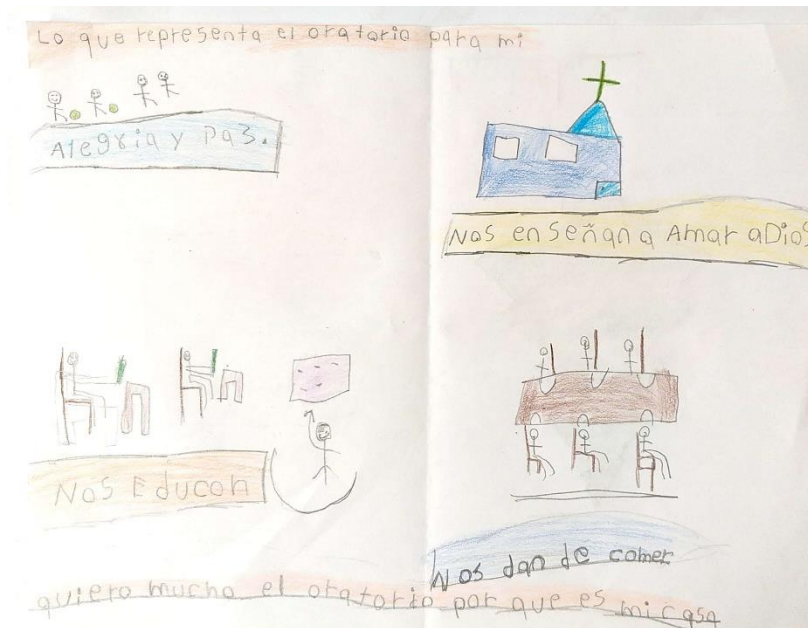 Lo que representa el oratorio para mi
Alegria y paз.
Nos enseñan a Amar a Dios
Nos Educan
Nos dan de comer
quiero mucho el oratorio por que es mi casa